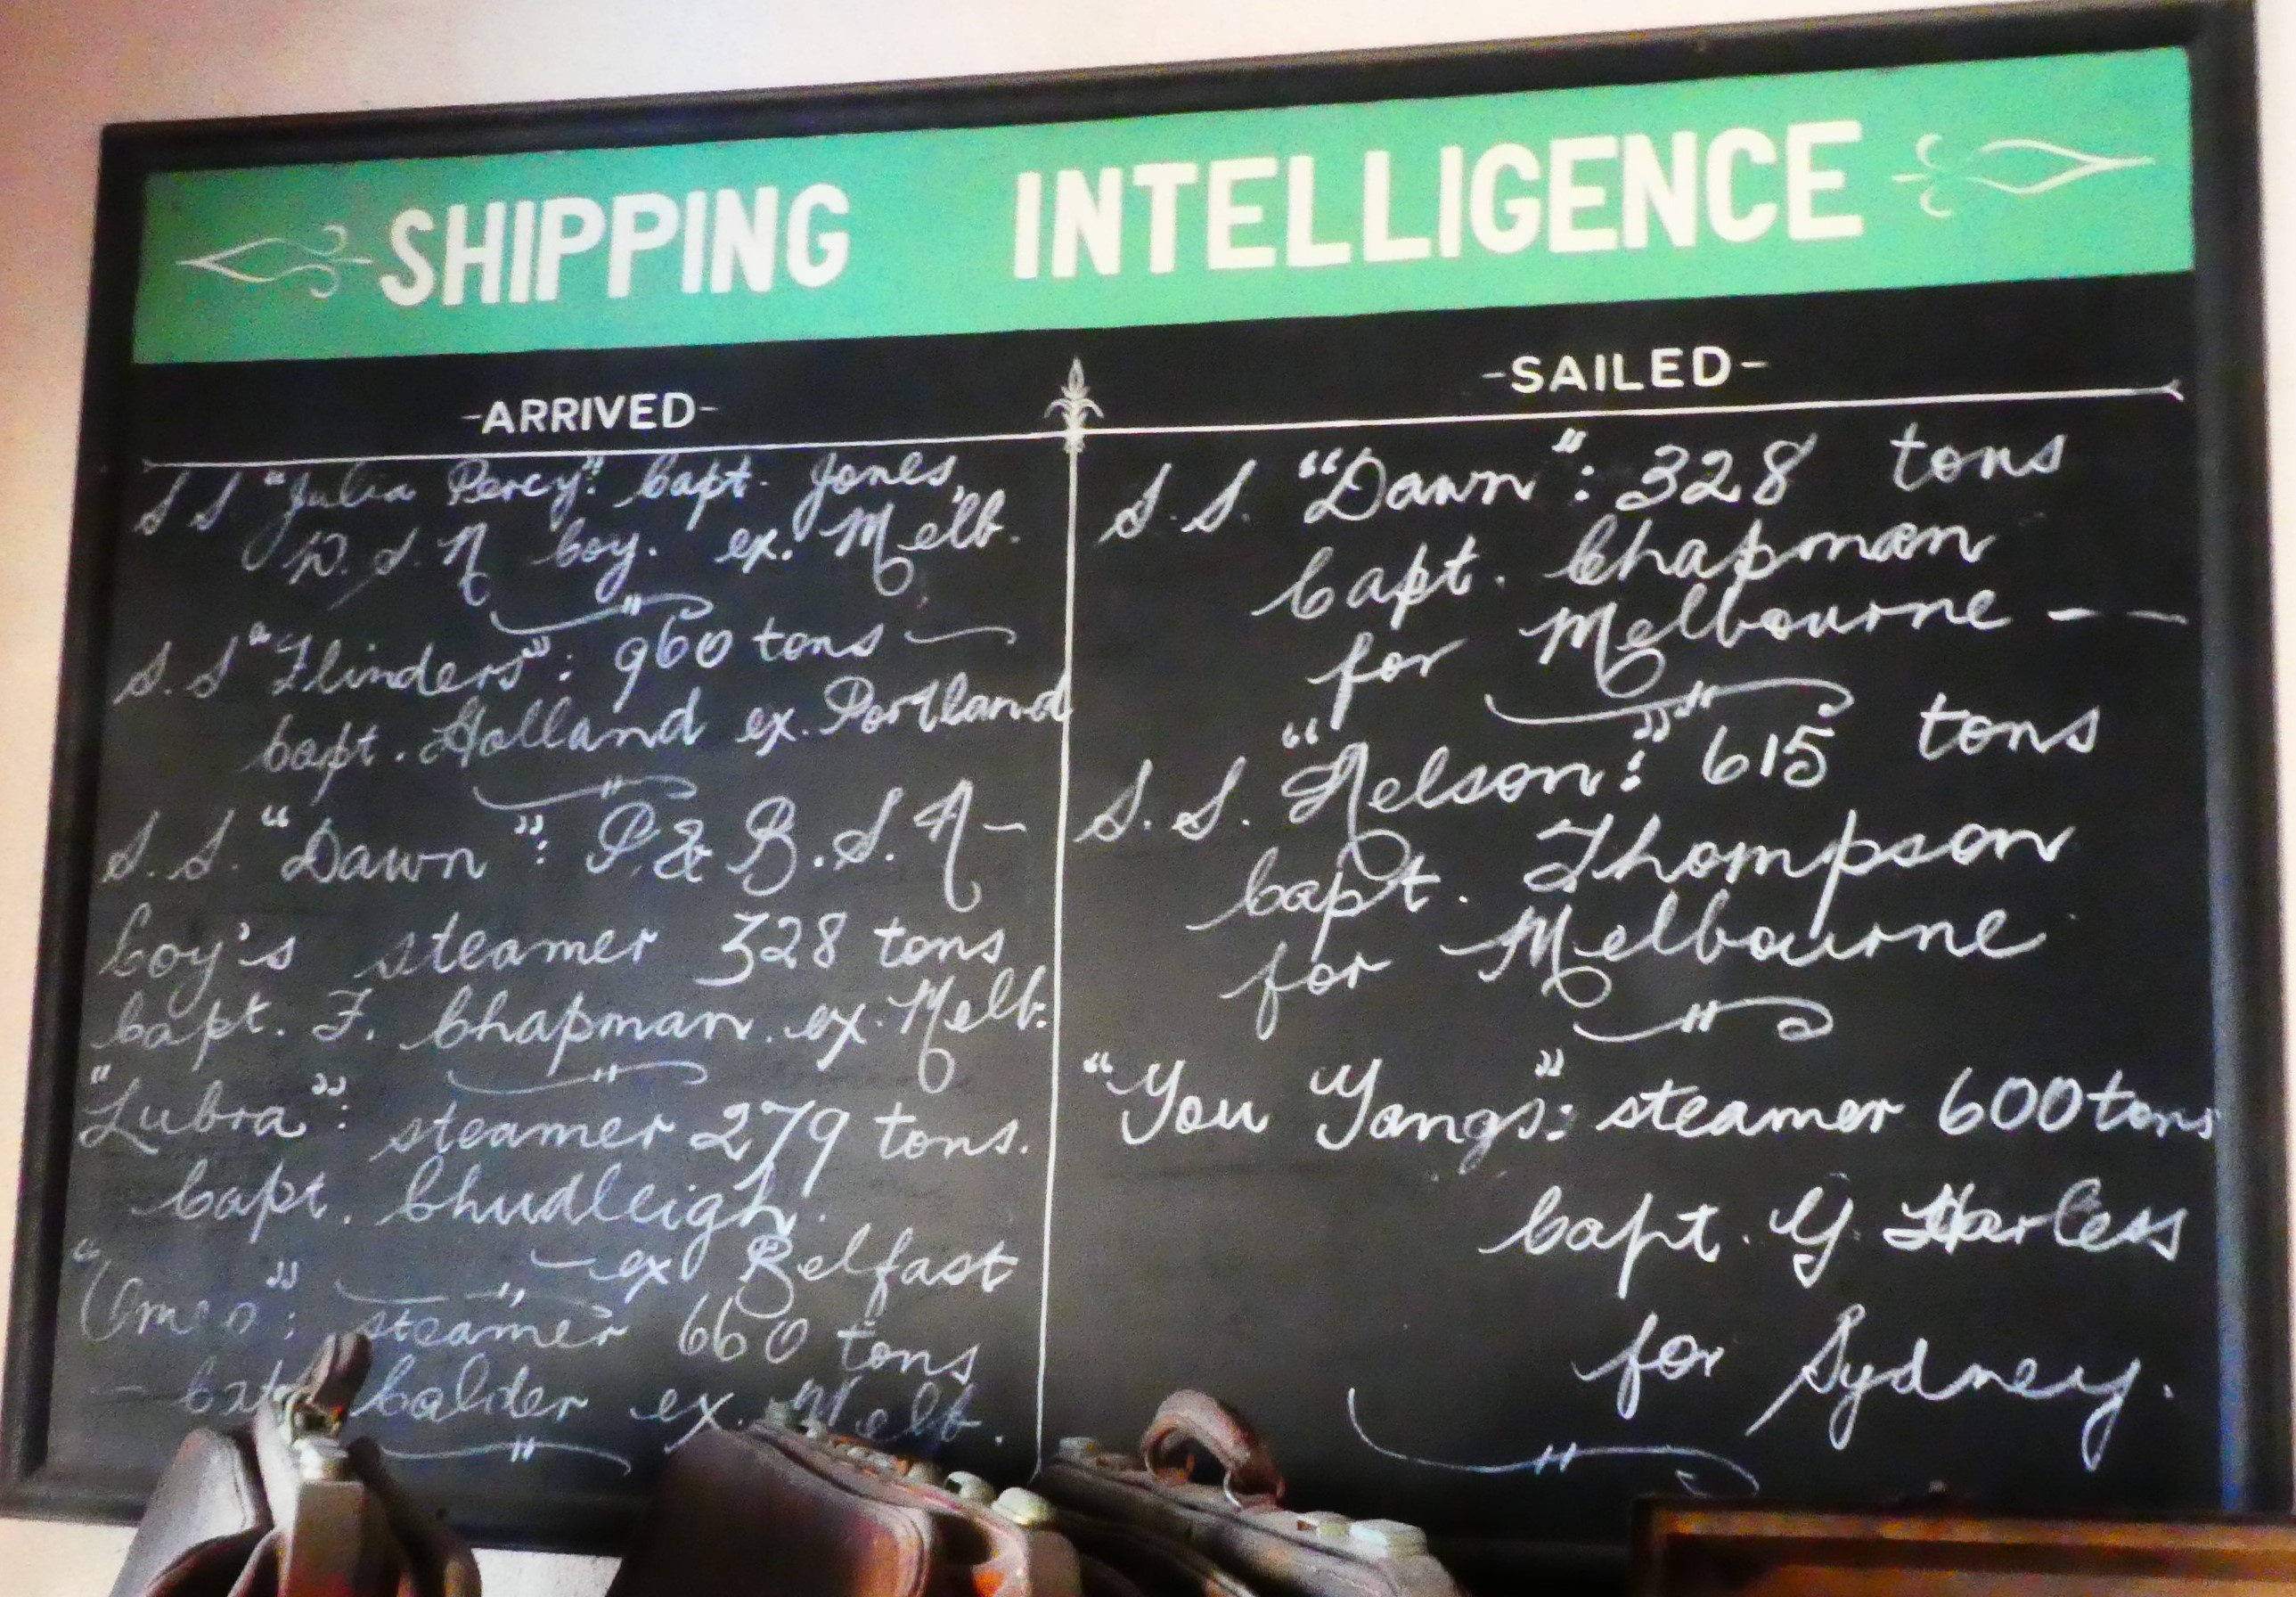 SHIPPING INTELLIGENCE
-ARRIVED-
S S "Julia Percy": Capt. Jones,
W. S. N Coy. ex. Melb.
S. S "Flinders": 960 tons
Capt. Holland ex. Portland
S. S. "Dawn": P. & B. S. N-
Coy's steamer 328 tons
Capt. F. Chapman. ex. Melb.
"Lubra": steamer 279 tons.
Capt. Chudleigh.
ex Belfast
"Omeo": steamer 660 tons
- Capt Calder ex. Melb.
-SAILED-
S. S. "Dawn": 328 tons
Capt. Chapman
for Melbourne - -
S. S. "Nelson": 615 tons
Capt. Thompson
for Melbourne
"You Yangs": steamer 600 tons
Capt. G. Harless
for Sydney.